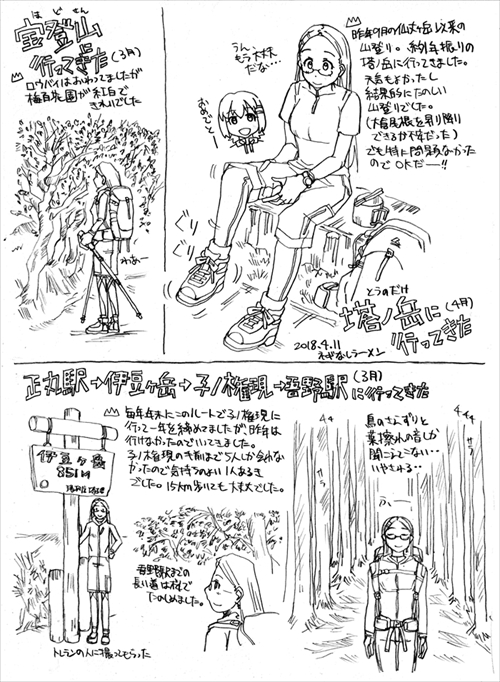 ほどさん
宝登山
に
行ってきた
(3月)
ロウバイはおわってましたが
梅百花園が紅白で
きれいでした
わあー
うん、
もう大丈夫
だな…
おめでとー
ぐり
ぐり
昨年9月の仙丈ヶ岳以来の
山登り。約1年振りの
塔ノ岳に行ってきました。
天気もよかったし
結果的にたのしい
山登りでした。
(大倉尾根を昇り降り
できるか不安だった)
でも特に問題なかった
ので OKだー!!
とうのだけ
塔ノ岳に
(4月)
行ってきた
2018.4.11
ねぎなしラーメン
正丸駅→伊豆ヶ岳→子ノ権現→吾野駅
(3月)
に行ってきた
毎年年末にこのルートで子ノ権現に
行って一年を締めてましたが、昨年は
行けなかったのでいってきました。
子ノ権現の手前まで5人しか会わな
かったので気持ちのよい1人あるき
でした。15km歩いても大丈夫でした。
伊豆ヶ岳
851M
トレランの人に撮ってもらった
吾野駅までの
長い道は桜で
たのしめました。
鳥のさえずりと
葉擦れの音しか
聞こえてこない…
いやされる‥
ふー